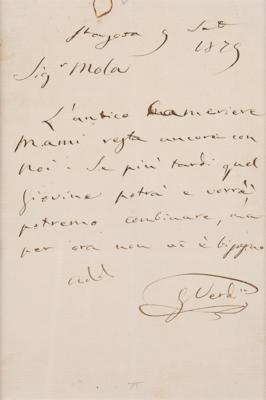 9 Set 1879
Sigr Mola
L'antico Cameriere
Mami resta ancora con
noi - Se più tardi quel
giovine potrà e vorrà,
potremo combinare, ma
per ora non vi è bisogno
add
G Verdi